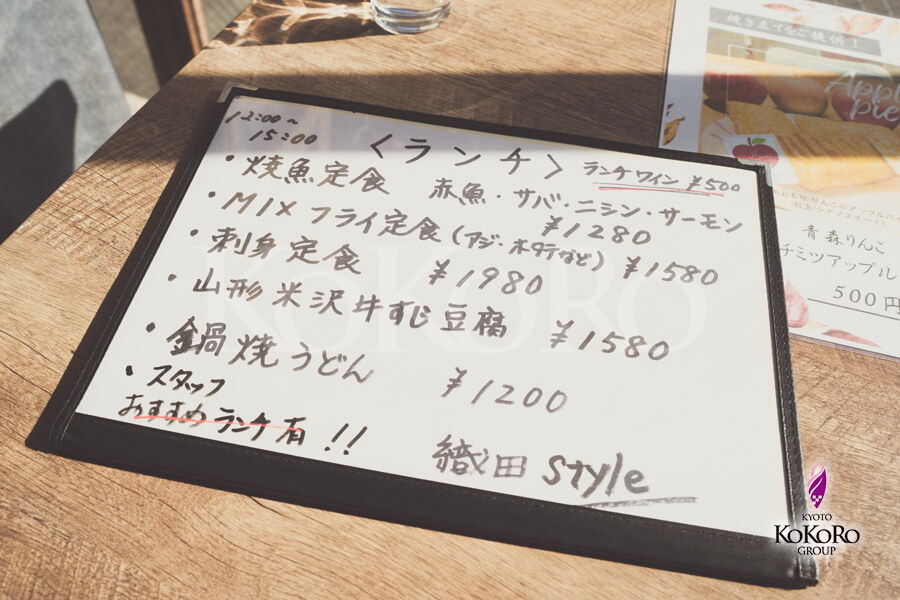 12:00~
15:00
<ランチ>
ランチワイン ¥500
・焼魚定食 赤魚・サバ・ニシン・サーモン
¥1280
・MIXフライ定食(アジ・ホタテなど) ¥1580
・刺身定食 ¥1980
・山形米沢牛すじ豆腐 ¥1580
・鍋焼うどん ¥1200
・スタッフ
おすすめランチ有!!
織田 style
焼き立てをご提供!
Apple
pie
青森りんご
チミツアップル
500円
KOKORO
KYOTO
KOKORO
GROUP